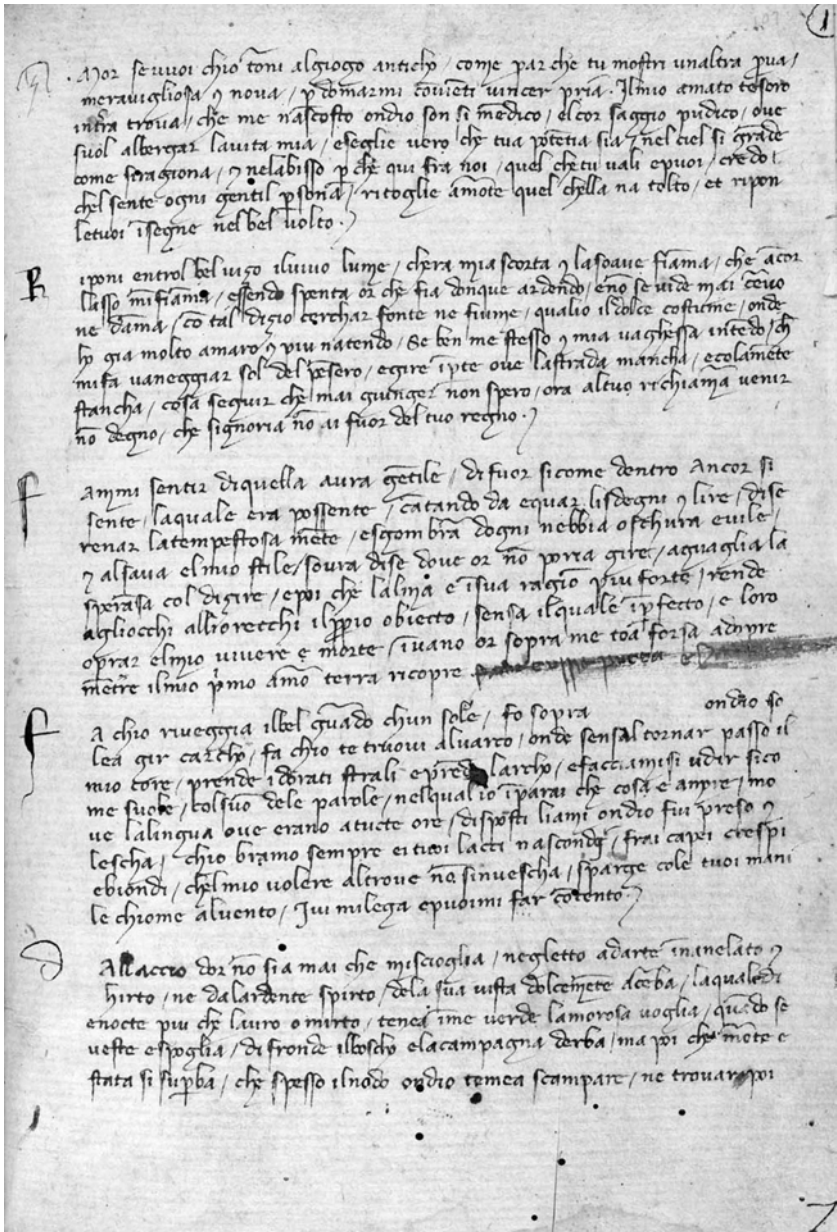 Amor se vuoi chio torni al giogo anticho / come par che tu mostri unaltra prova /
meravigliosa et nova / p domarmi convienti vincer pria. Il mio amato tesoro
in terra trova / che me nascosto ondio son si mendico / el cor saggio pudico / ove
suol albergar la vita mia / e segli e vero che tua potētia sia / nel ciel si grāde
come si ragiona / et nelabisso p che qui fra noi / quel che tu vali e puoi / credo
chel sente ogni gentil psona / ritoglie amorte quel chella na tolto / et ripon
le tuoi īsegne nel bel volto.
R iponi entrol bel viso il vivo lume / chera mia scorta et la soave fiāma / che ācor
lasso mīfiāma / essendo spenta or che fia donque ardendo / e nō se vide mai cervo
ne dāma / cō tal disio cerchar fonte ne fiume / qualio il dolce costume / onde
ho gia molto amaro et piu natendo / Se ben me stesso et mia vaghessa intēdo / ch
mi fa vaneggiar sol del pēsero / e gire īpte ove la strada mancha / e cola mēte
stancha / cosa seguir che mai giunger non spero / ora al tuo richiamar venir
nō degno / che signoria nō ai fuor del tuo regno.
F ammi sentir di quella aura gētile / di fuor si come dentro Ancor si
sente / la quale era possente / cātando da equar li sdegni et lire / di se
renar la tempestosa mēte / e sgombrar dogni nebbia oschura e vile /
et alsava el mio stile / sovra di se dove or nō poria gire / aguaglia la
sperāsa col disire / e poi che lalma e ī sua ragiō piu forte / rende
agliocchi alliorecchi il pprio obiecto / sensa il quale īpfecto / e loro
oprar el mio vivere e morte / īvano or sopra me toa forsa adopre
mētre il mio pmo amor terra ricopre
F a chio riveggia il bel guardo chun sole / fo sopra ondio so
lea gir carcho / fa chio te truovi al varco / onde sensal tornar passo il
mio core / prende i dorati strali e prēd larcho / e facciamisi udir si co
me suole / col suō dele parole / nel qual io īparai che cosa e amore / mo
ve la lingua ove erano a tucte ore / disposti li ami ondio fui preso et
lescha / chio bramo sempre e i tuoi lacci nascondi / fra i capei crespi
e biondi / chel mio volere altrove nō sinvescha / sparge cole tuoi mani
le chiome al vento / Ivi mi lega e puoimi far cōtento.
D Al laccio dor nō sia mai che mi scioglia / neglecto ad arte īnanelato et
hirto / ne da lardente spirto / dela sua vista dolcemēte acerba / la quale di
e nocte piu che lauro o mirto / tenea ī me verde lamorosa voglia / quādo se
veste e spoglia / di fronde il boscho e la campagna derba / ma poi che morte e
stata si supba / che spesso il nodo ondio temea scampare / ne trovar poi